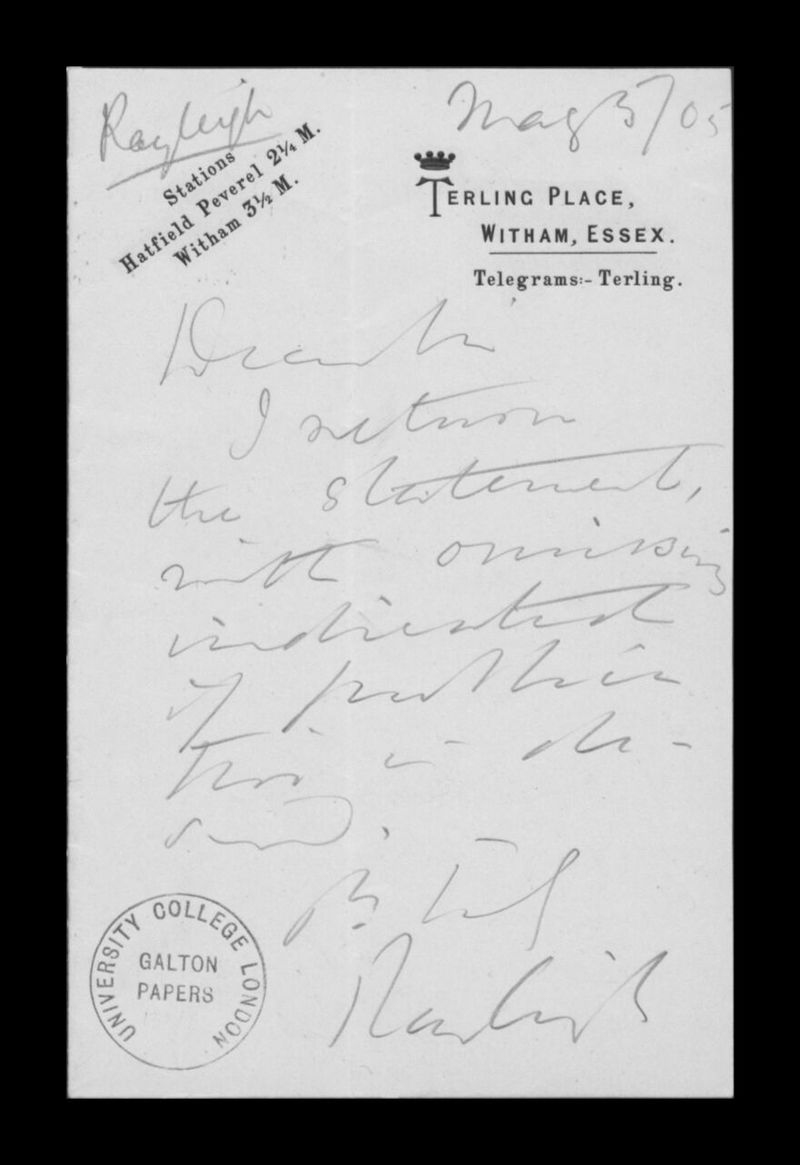 Rayleigh
May 5/05
Stations
Hatfield Peverel 2¼ M.
Witham 3½ M.
TERLING PLACE,
WITHAM, ESSEX.
Telegrams:- Terling.
Dear Sir
I return
the statement,
with omission
indicated
if publica
tion is de-
sired.
Rayleigh
UNIVERSITY COLLEGE LONDON
GALTON
PAPERS